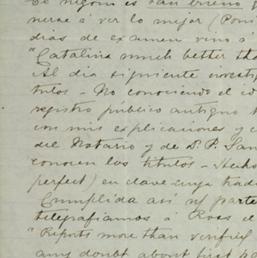 negoni es tan bueno
nerae á ver lo mejor (Poni
dias de examen vino á
"Catalina much better tha
Al dia siguiente investi
tulos - No conociendo el
registro público antiguo
con mis explicaciones y
del Notario y de D. P. San
conocen los titulos - Hecho
perfect) en clave cuya trad
Cumplida asi n/ parte
telegrafiamos á Rees el
"Reports more than verified
any doubt about best